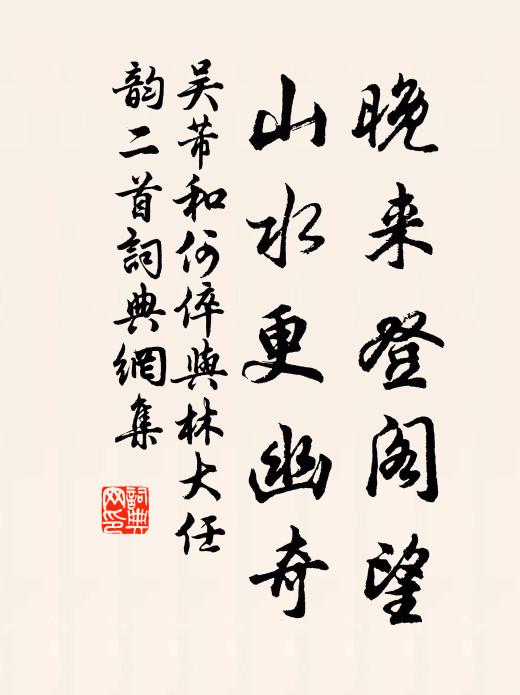 晚来登阁望
山水更幽奇
吴芾和何倅與林大任
韵二首詞典網集
詞典
网印